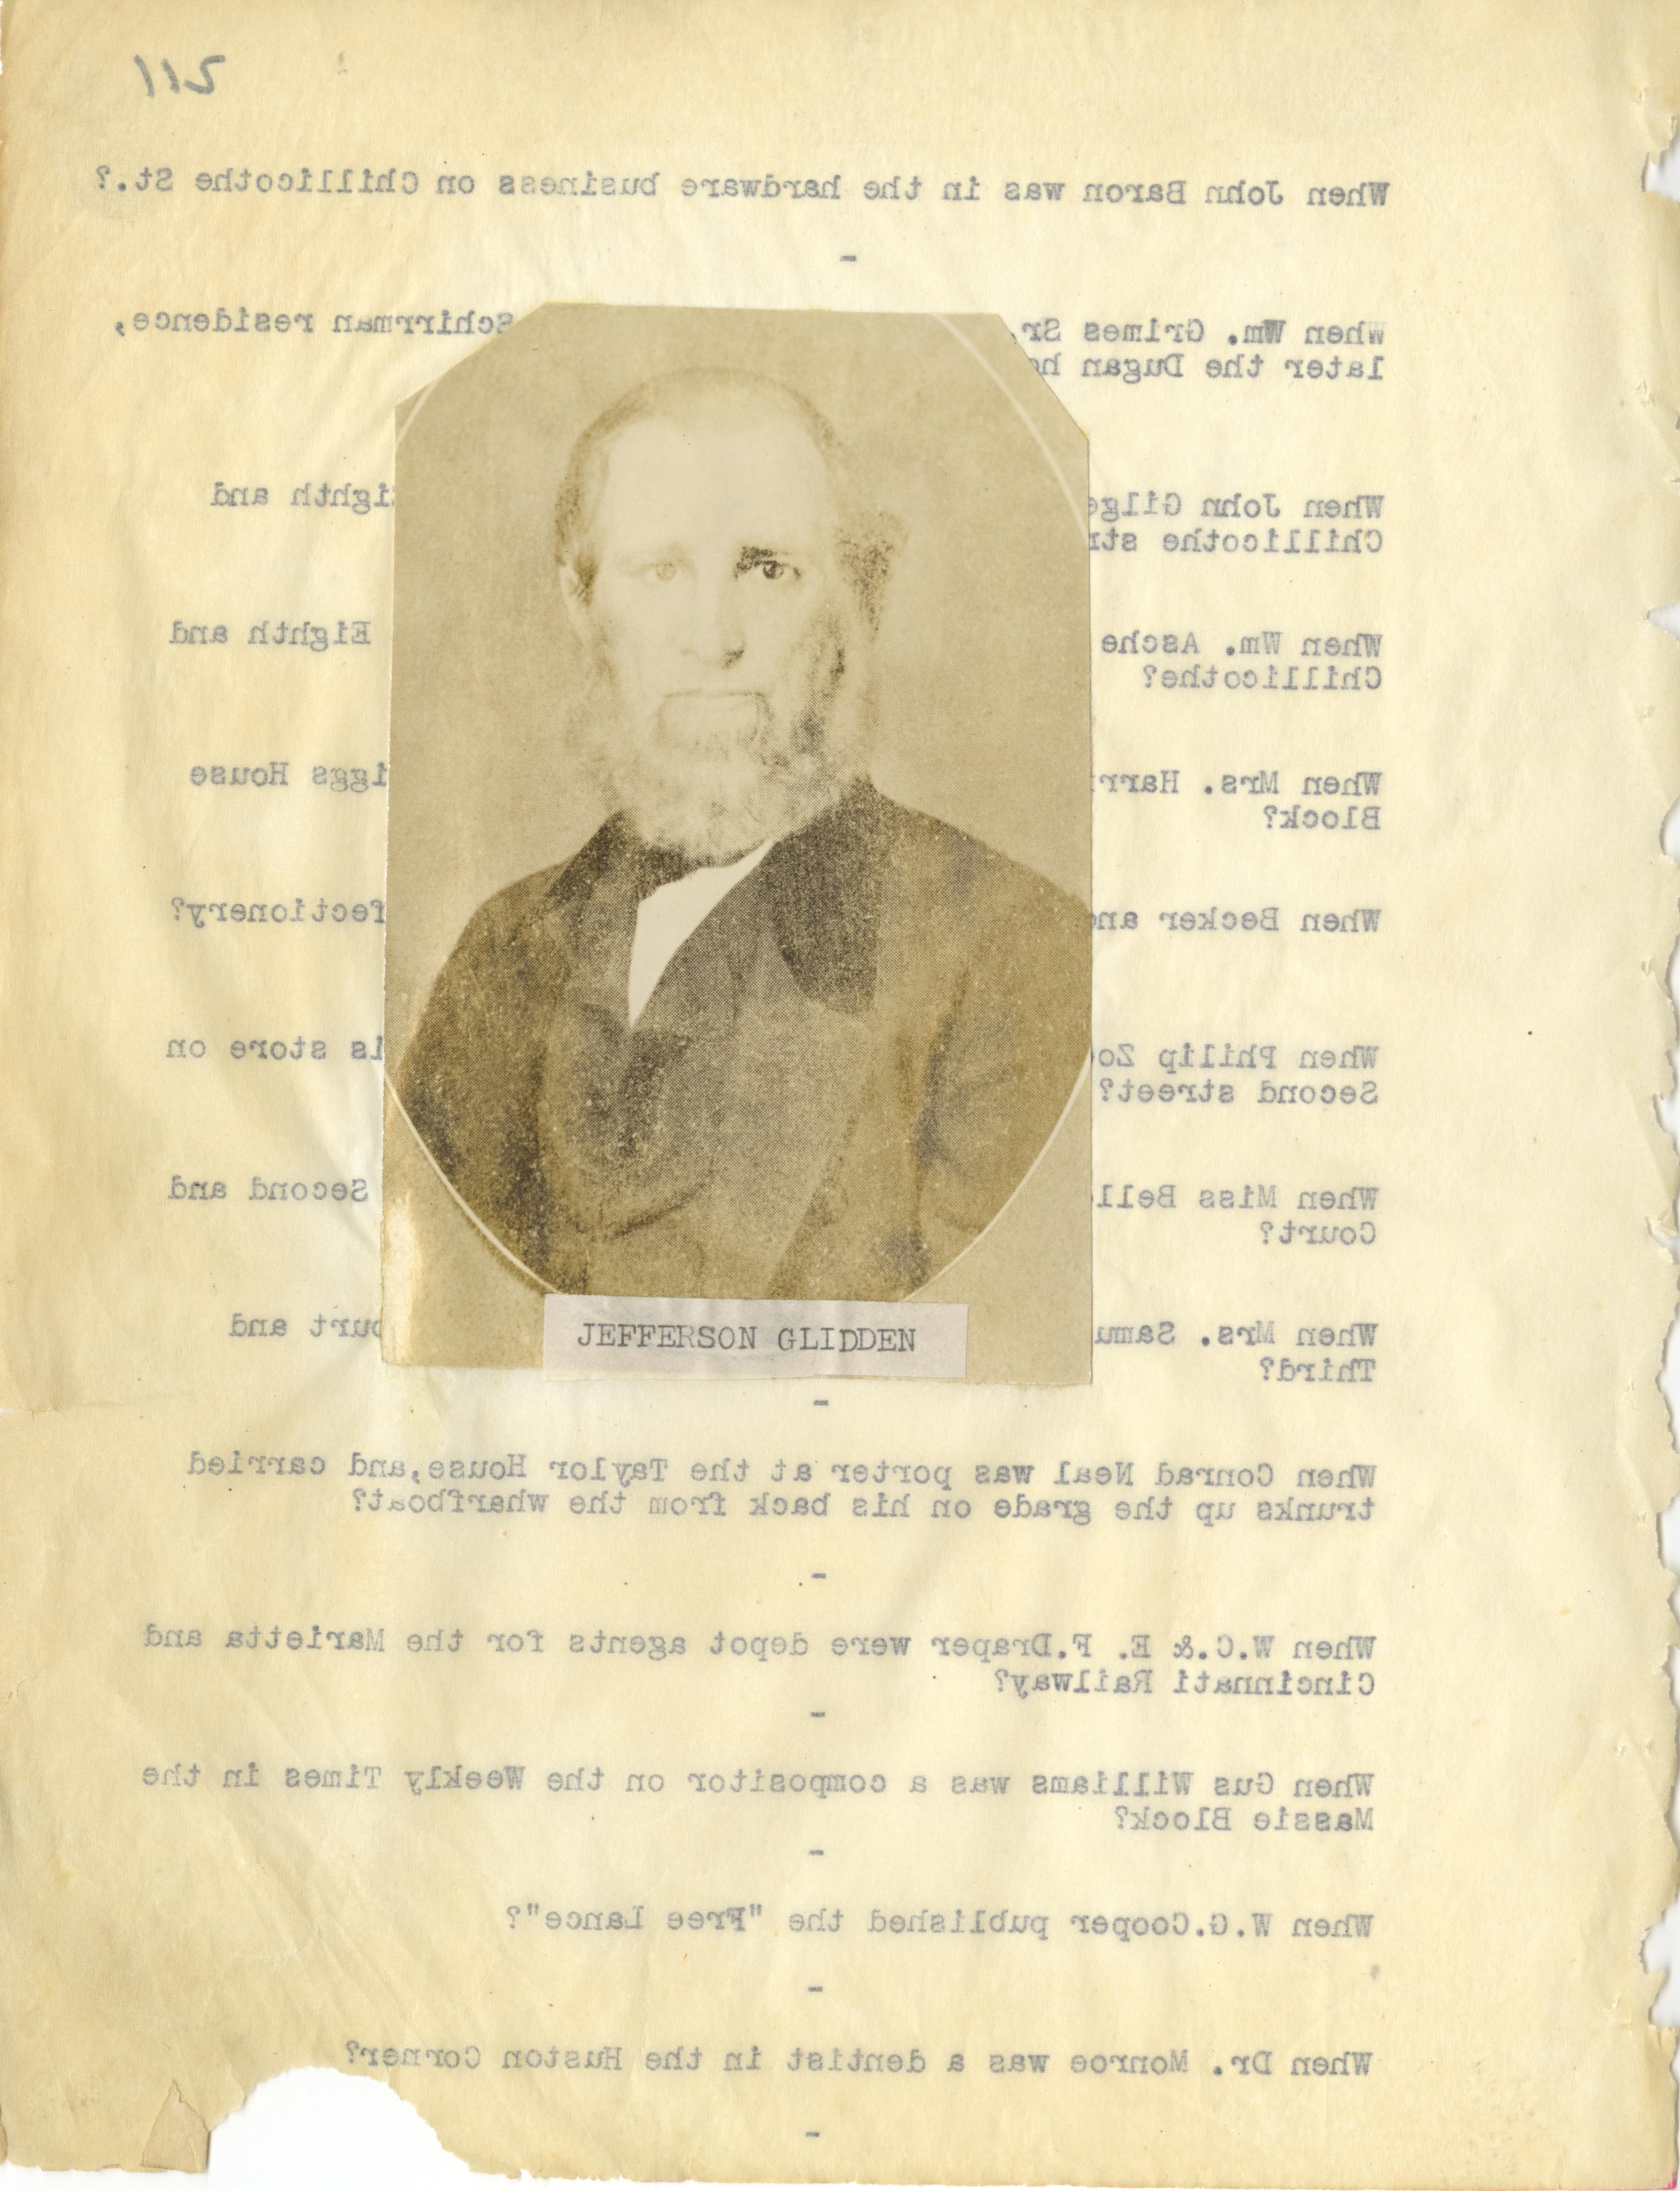 211
When John Baron was in the hardware business on Chillicothe St.?
-
When Wm. Grimes Sr. Schirrman residence,
later the Dugan
When John Eighth and
Chillicothe
When Wm. Asche Eighth and
Chillicothe?
When Mrs. House
Block?
When Becker
When Philip store on
Second street?
When Miss Second and
Court?
When Mrs. and
Third?
JEFFERSON GLIDDEN
-
When Conrad Neal was porter at the Taylor House,and carried
trunks up the grade on his back from the wharfboat?
-
When W.C.& E. F.Draper were depot agents for the Marietta and
Cincinnati Railway?
-
When Gus Williams was a compositor on the Weekly Times in the
Massie Block?
-
When W.G.Cooper published the "Free Lance"?
-
When Dr. Monroe was a dentist in the Huston Corner?
-